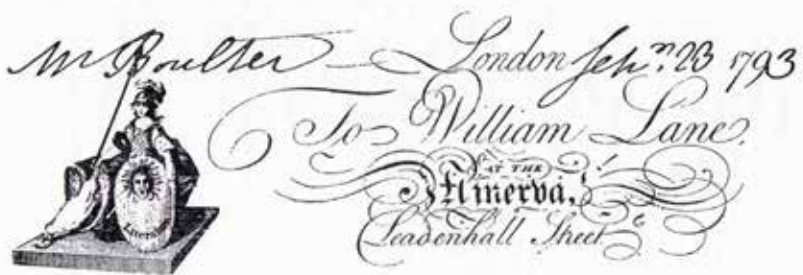 Mr Boulter — London Sepr. 23 1793
To William Lane,
AT THE
Minerva,
Leadenhall Street
Literature